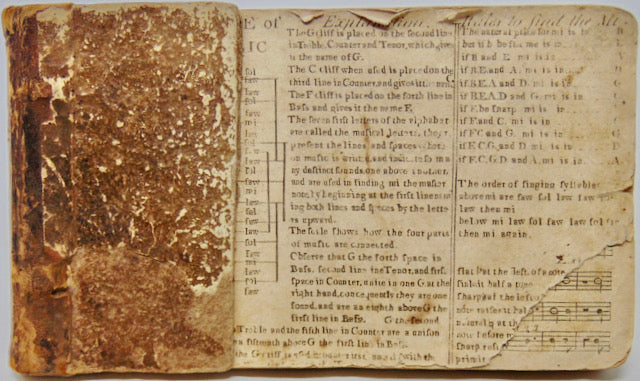 E of
IC
sol
faw
law
sol
faw
mi
law
sol
faw
law
sol
faw
mi
law
sol
faw
law
sol
faw
mi
law
sol
faw
Explanation.
The G cliff is placed on the second line
in Treble, Counter and Tenor, which gives
is the name of G.
The C cliff when used is placed on the
third line in Counter, and gives it
The F cliff is placed on the forth line in
Bass and gives it the name F.
The seven first letters of the alphabet
are called the musical letters, they re
present the lines and spaces
on music is wrote, and indicates
ny distinct sounds one above another,
and are used in finding mi the master
note, by beginning at the first line nam
ing both lines and spaces by the letter
is upward.
The scale shows how the four parts
of music are connected.
Observe that G the forth space in
Bass, second line in Tenor, and first
space in Counter, unite in one G at the
right hand, consequently they are one
sound, and are an eighth above G the
first line in Bass. G the second
Treble and the fifth line in Counter are a unison
a fifteenth above G the first line in Bass.
the G cliff is used with the
Rules to find the Mi
The natural place for mi is in B
but if b be flat mi is in
if B and E mi is in
if B E and A. mi is in
if B E A and D. mi is in
if B E A D and G. mi is in
if F. be sharp mi is in
if F and C. mi is in
if F C and G. mi is in
if F C G, and D. mi is in
if F, C, G, D and A, mi is in A
The order of singing syllables
above mi are faw sol law faw sol
law then mi
below mi law sol faw law sol faw
then mi again.
flat b at the left of a note
sinks it half a tone
sharp at the left
note raises it half
natural at the
note before
sharp rest
primit